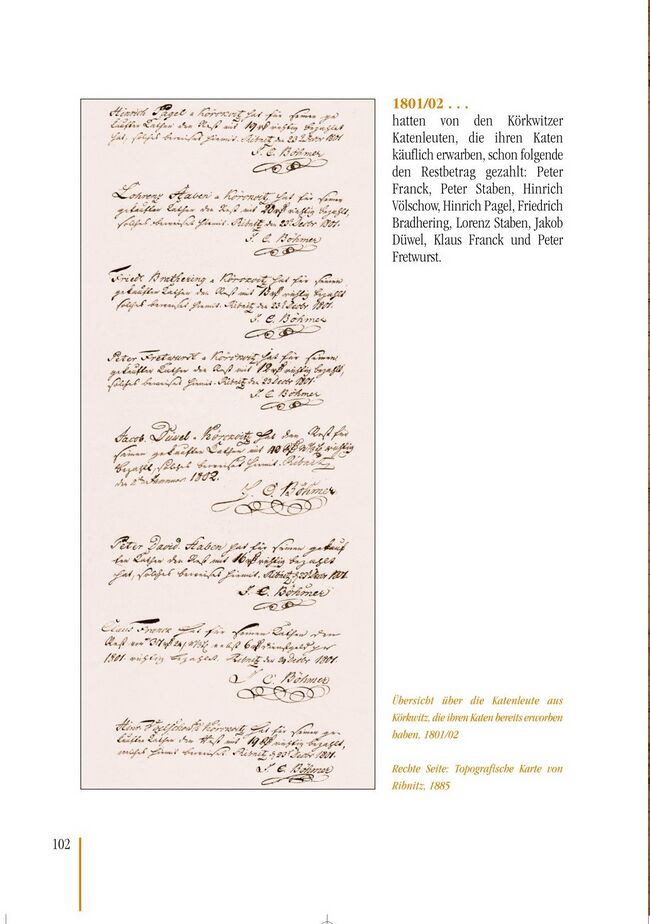 Hinrich Pagel a Körckwitz hat für seinen ge
kauften Kathen den Rest mit 19 rth richtig bezahlt
hat, solches bereinigt hiermit. Ribnitz den 23 Decbr 1801.
J. C. Böhmer
Lohrenz Staben a Körckwitz hat für seinen
gekauften Kathen den Rest mit richtig bezahlt,
solches hiermit. Ribnitz den 23 Decbr 1801.
J. C. Böhmer
Friedr Brathering a Körckwitz hat für seinen
gekauften Kathen den Rest mit richtig bezahlt
solches hiermit. Ribnitz den 23 Decbr 1801.
J. C. Böhmer
Peter Fretwurst a Körckwitz hat für seinen
gekauften Kathen den Rest mit richtig bezahlt,
solches hiermit. Ribnitz den 23 Decbr 1801.
J. C. Böhmer
Jacob Düwel a Körckwitz hat den Rest für
seinen gekauften Kathen mit 40 richtig
bezahlt, solches hiermit. Ribnitz
den Januar 1802.
J. C. Böhmer
Peter David Staben hat für seinen gekauf
ten Kathen den Rest mit richtig bezahlt
hat, solches hiermit. Ribnitz 23 Decbr 1801.
J. C. Böhmer
Claus Franck hat für seinen Kathen den
Rest
1801 richtig bezahlt. Ribnitz den Decbr 1801.
J. C. Böhmer
Hinr. Körckwitz hat für seinen ge
kauften Kathen den Rest mit richtig bezahlt,
hiermit. Ribnitz 23 Decbr 1801.
J. C. Böhmer
1801/02 . . .
hatten von den Körkwitzer
Katenleuten, die ihren Katen
käuflich erwarben, schon folgende
den Restbetrag gezahlt: Peter
Franck, Peter Staben, Hinrich
Völschow, Hinrich Pagel, Friedrich
Bradhering, Lorenz Staben, Jakob
Düwel, Klaus Franck und Peter
Fretwurst.
Übersicht über die Katenleute aus
Körkwitz, die ihren Katen bereits erworben
haben, 1801/02
Rechte Seite: Topografische Karte von
Ribnitz, 1885
102